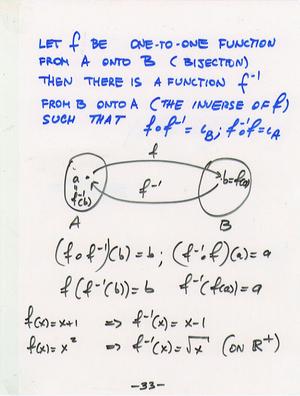 LET f BE ONE-TO-ONE FUNCTION
FROM A ONTO B (BIJECTION)
THEN THERE IS A FUNCTION f⁻¹
FROM B ONTO A (THE INVERSE OF f)
SUCH THAT f∘f⁻¹ = ι_B; f⁻¹∘f = ι_A
f
a
b=f(a)
f⁻¹
f⁻¹(b)
A B
(f∘f⁻¹)(b) = b; (f⁻¹∘f)(a) = a
f(f⁻¹(b)) = b f⁻¹(f(a)) = a
f(x) = x+1 => f⁻¹(x) = x-1
f(x) = x² => f⁻¹(x) = √x (ON ℝ⁺)
-33-